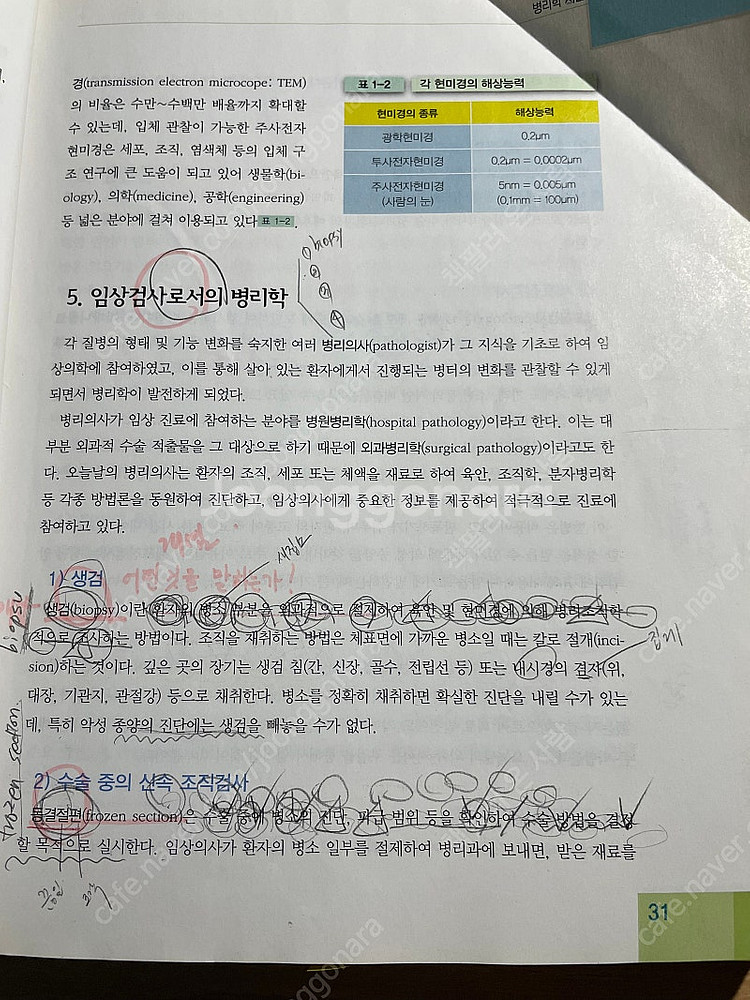 병리학
경(transmission electron microcope: TEM)
의 비율은 수만~수백만 배율까지 확대할
수 있는데, 입체 관찰이 가능한 주사전자
현미경은 세포, 조직, 염색체 등의 입체 구
조 연구에 큰 도움이 되고 있어 생물학(bi-
ology), 의학(medicine), 공학(engineering)
등 넓은 분야에 걸쳐 이용되고 있다 표 1-2 .
표 1-2 각 현미경의 해상능력
현미경의 종류 해상능력
광학현미경 0.2μm
투사전자현미경 0.2μm = 0.0002μm
주사전자현미경 5nm = 0.005μm
(사람의 눈) (0.1mm = 100μm)
① biopsy
②
③
④
5. 임상검사로서의 병리학
각 질병의 형태 및 기능 변화를 숙지한 여러 병리의사(pathologist)가 그 지식을 기초로 하여 임
상의학에 참여하였고, 이를 통해 살아 있는 환자에게서 진행되는 병터의 변화를 관찰할 수 있게
되면서 병리학이 발전하게 되었다.
병리의사가 임상 진료에 참여하는 분야를 병원병리학(hospital pathology)이라고 한다. 이는 대
부분 외과적 수술 적출물을 그 대상으로 하기 때문에 외과병리학(surgical pathology)이라고도 한
다. 오늘날의 병리의사는 환자의 조직, 세포 또는 체액을 재료로 하여 육안, 조직학, 분자병리학
등 각종 방법론을 동원하여 진단하고, 임상의사에게 중요한 정보를 제공하여 적극적으로 진료에
참여하고 있다.
1) 생검
어떤 것을 말하는가!
biopsy
생검(biopsy)이란 환자의 병소 부분을 외과적으로 절제하여 육안 및 현미경에 의해 병리조직학
적으로 조사하는 방법이다. 조직을 채취하는 방법은 체표면에 가까운 병소일 때는 칼로 절개(inci-
sion)하는 것이다. 깊은 곳의 장기는 생검 침(간, 신장, 골수, 전립선 등) 또는 내시경의 겸자(위,
집게
대장, 기관지, 관절강) 등으로 채취한다. 병소를 정확히 채취하면 확실한 진단을 내릴 수가 있는
데, 특히 악성 종양의 진단에는 생검을 빼놓을 수가 없다.
frozen section
2) 수술 중의 신속 조직검사
동결절편(frozen section)은 수술 중에 병소의 진단, 파급 범위 등을 확인하여 수술 방법을 결정
할 목적으로 실시한다. 임상의사가 환자의 병소 일부를 절제하여 병리과에 보내면, 받은 재료를
31
cafe.naver
joonggonara